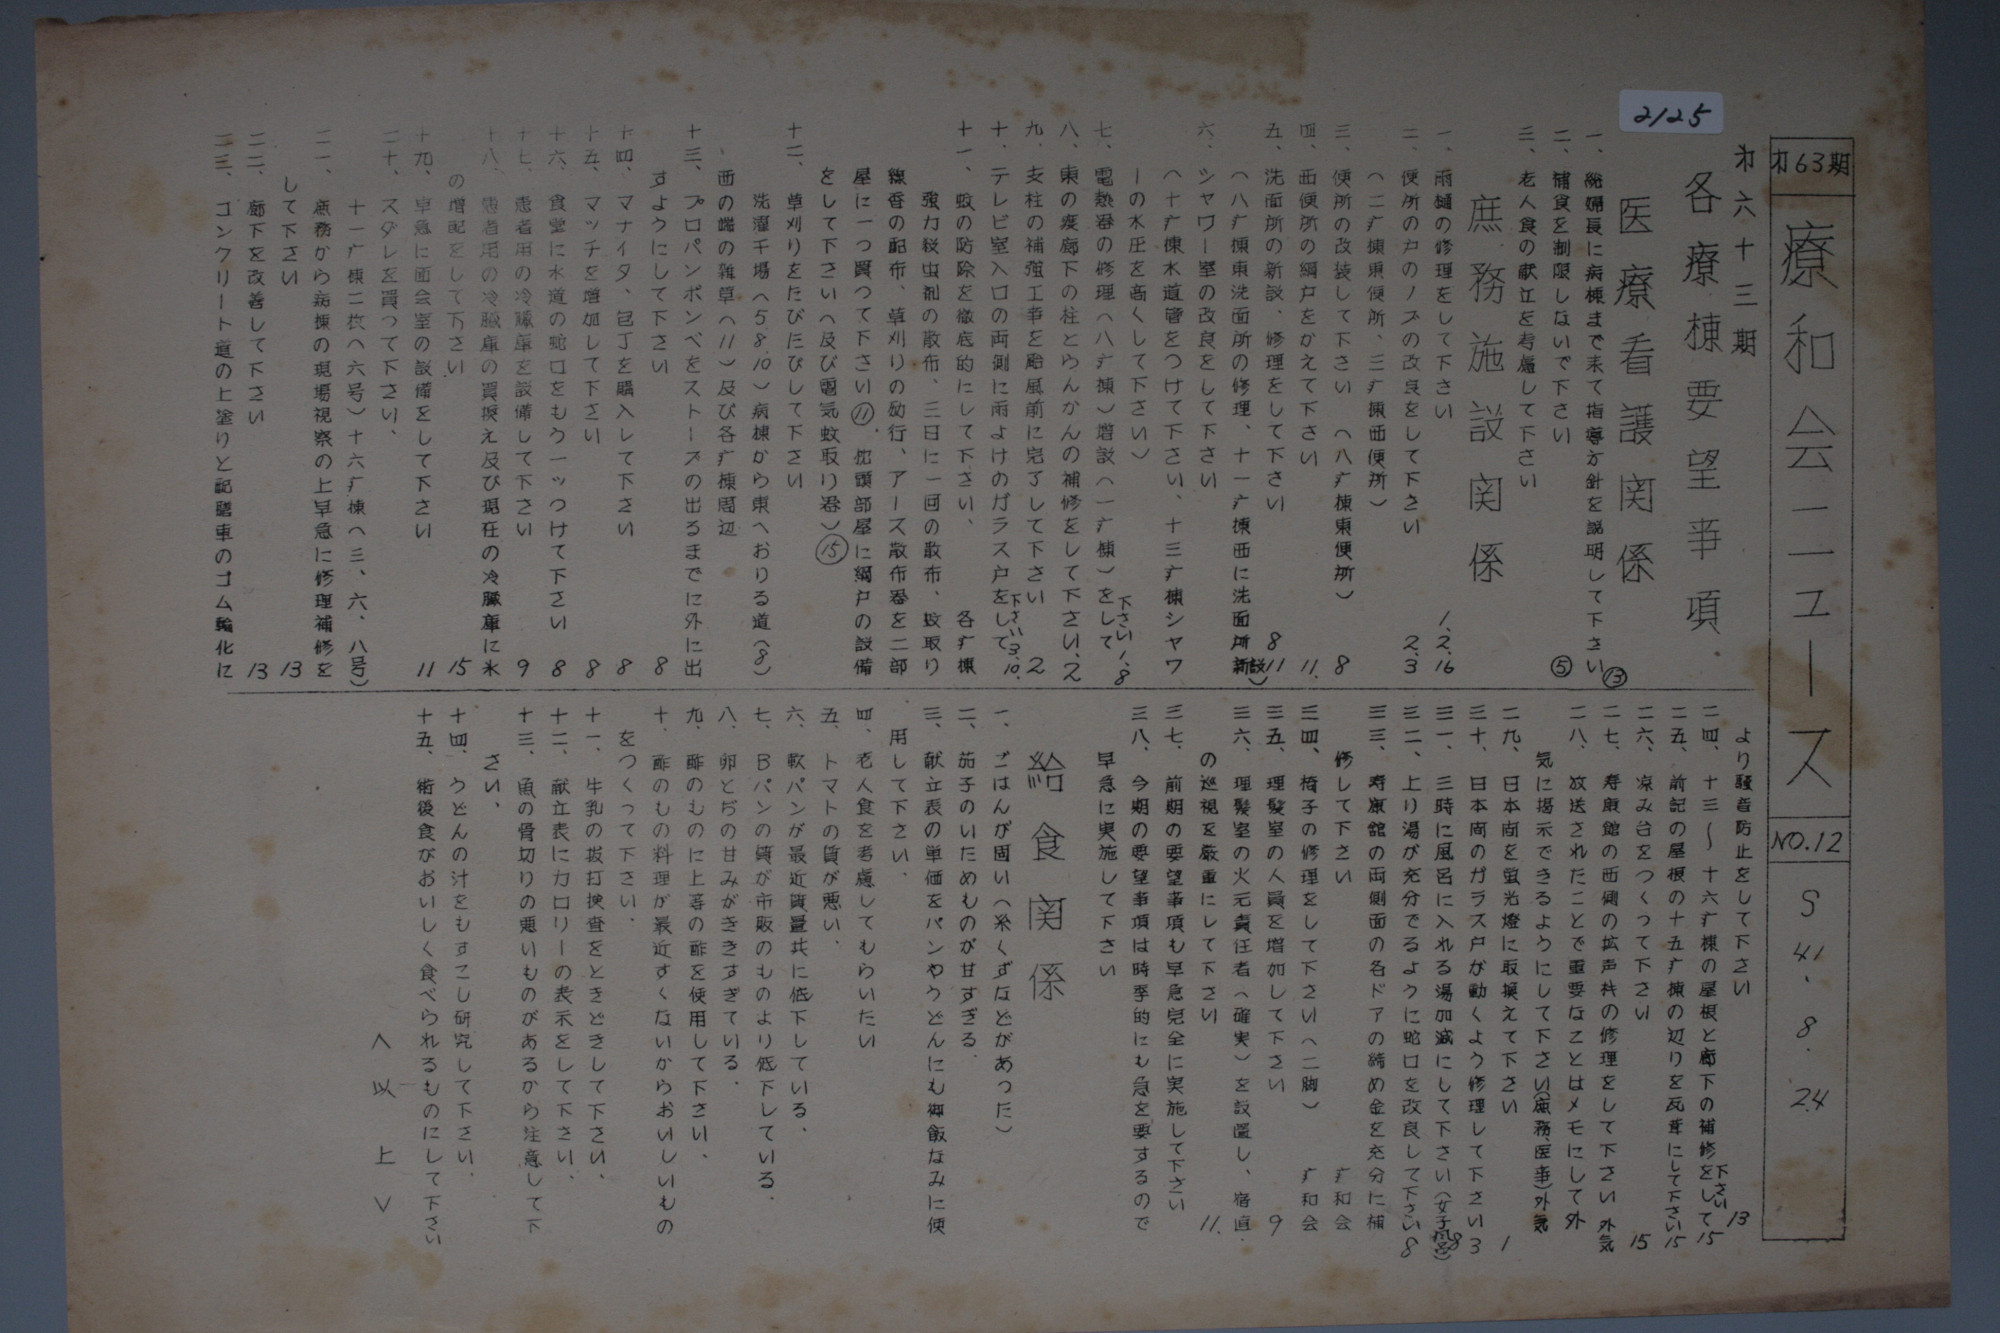 2125
才63期
療和会ニュース
NO.12
S41.8.24
才六十三期
各療棟要望事項
医療看護関係
一、総婦長に病棟まで来て指導方針を説明して下さい ⑬
二、補食を制限しないで下さい ⑤
三、老人食の献立を考慮して下さい
庶務施設関係
一、雨樋の修理をして下さい 1.2.16
二、便所の戸のノブの改良をして下さい 2.3
(二疒棟東便所、三疒棟西便所)
三、便所の改装して下さい (八疒棟東便所) 8
四、西便所の網戸をかえて下さい 11.
五、洗面所の新設、修理をして下さい 8 11
(八疒棟東洗面所の修理、十一疒棟西に洗面所新設)
六、シャワー室の改良をして下さい
(十疒棟水道管をつけて下さい、十三疒棟シヤワ
ーの水圧を高くして下さい)
七、電熱器の修理(八疒棟)増設(一疒棟)をして下さい 1.8
八、東の渡廊下の柱とらんかんの補修をして下さい、2
九、支柱の補強工事を颱風前に完了して下さい 2
十、テレビ室入口の両側に雨よけのガラス戸をして下さい 3.10.
十一、蚊の防除を徹底的にして下さい、 各疒棟
強力殺虫剤の散布、三日に一回の散布、蚊取り
線香の配布、草刈りの励行、アース散布器を二部
屋に一つ買つて下さい⑪、枕頭部屋に網戸の設備
をして下さい(及び電気蚊取り器)⑮
十二、草刈りをたびたびして下さい
洗濯干場(5.8.10)病棟から東へおりる道(8)
、西の端の雑草(11)及び各疒棟周辺
十三、プロパンボンベをストーブの出るまでに外に出
すようにして下さい 8
十四、マナイタ、包丁を購入して下さい 8
十五、マッチを増加して下さい 8
十六、食堂に水道の蛇口をもう一ッつけて下さい 8
十七、患者用の冷臓庫を設備して下さい 9
十八、患者用の冷臓庫の買換え及び現在の冷臓庫に氷
の増配をして下さい 15
十九、早急に面会室の設備をして下さい 11
二十、スダレを買つて下さい、
十一疒棟二枚(六号)十六疒棟(三、六、八号)
二一、庶務から病棟の現場視察の上早急に修理補修を
して下さい 13
二二、廊下を改善して下さい 13
二三、コンクリート道の上塗りと配膳車のゴム輪化に
より騒音防止をして下さい 13
二四、十三〜十六疒棟の屋根と廊下の補修をして下さい 15
二五、前記の屋根の十五疒棟の辺りを瓦茸にして下さい 15
二六、凉み台をつくって下さい 15
二七、寿康館の西側の拡声器の修理をして下さい 外気
二八、放送されたことで重要なことはメモにして外
気に掲示できるようにして下さい(庶務、医事)外気
二九、日本間を蛍光燈に取換えて下さい 1
三十、日本間のガラス戸が動くよう修理して下さい 3
三一、三時に風呂に入れる湯加減にして下さい(女子風呂)8
三二、上り湯が充分でるように蛇口を改良して下さい 8
三三、寿康館の両側面の各ドアの締め金を充分に補
修して下さい 疒和会
三四、椅子の修理をして下さい(二脚) 疒和会
三五、理髪室の人員を増加して下さい 9
三六、理髪室の火元責任者(確実)を設置し、宿直
の巡視を厳重にして下さい 11.
三七、前期の要望事項も早急完全に実施して下さい
三八、今期の要望事項は時季的にも急を要するので
早急に実施して下さい
給食関係
一、ごはんが固い(糸くずなどがあつた)
二、茄子のいためものが甘すぎる、
三、献立表の単価をパンやうどんにも御飯なみに使
用して下さい、
四、老人食を考慮してもらいたい
五、トマトの質が悪い、
六、軟パンが最近質量共に低下している、
七、Bパンの質が市販のものより低下している、
八、卵とぢの甘みがききすぎている、
九、酢のものに上等の酢を使用して下さい、
十、酢のもの料理が最近すくないからおいしいもの
をつくって下さい、
十一、牛乳の抜打検査をときどきして下さい、
十二、献立表にカロリーの表示をして下さい、
十三、魚の骨切りの悪いものがあるから注意して下
さい、
十四、うどんの汁をもすこし研究して下さい、
十五、術後食がおいしく食べられるものにして下さい
<以上>